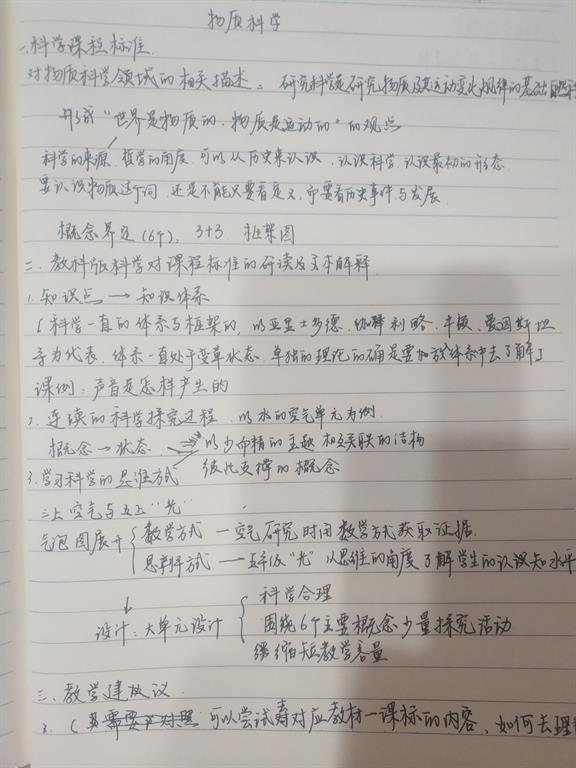 物质科学
一、科学课程标准.
对物质科学领域的相关描述: 研究科学是研究物质及其运动变化规律的基础自然
形成"世界是物质的,物质是运动的"的观点
科学的来源,哲学的角度,可以从历史来认识,认识科学,认识最初的形态.
要认识物质这个词,还是不能只要看定义,即要看历史事件与发展.
概念界定(6个), 3+3 框架图
二、教科版科学对课程标准的研读及文本解释
1.知识点→知识体系
(科学一直的体系与框架的,以亚里士多德、伽利略、牛顿、爱因斯坦
等为代表,体系一直处于变革状态,单独的理论的确是要加放体系中去了解)
课例:声音是怎样产生的
2.连续的科学探究过程,以水的空气单元为例.
概念→状态. 以少而精的主题相互关联的结构
3.学习科学的思维方式 彼此支撑的概念
三上空气与五上"光"
气泡图展开 教学方式 — 空气研究时间教学方式获取证据.
思维方式 — 五年级"光"以思维的角度了解学生的认识知水平
↓
设计:大单元设计 科学合理
围绕6个主要概念少量探究活动
缩短教学容量
三、教学建议
3.( 可以尝试对应教材—课标的内容,如何去理